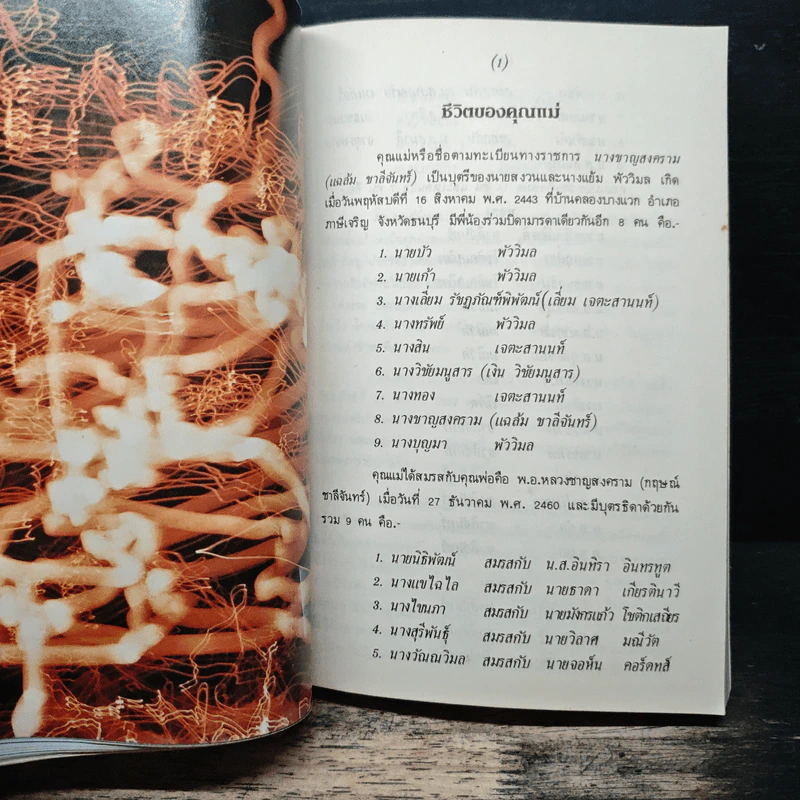 (1)
ชีวิตของคุณแม่
คุณแม่หรือชื่อตามทะเบียนทางราชการ นางชาญสงคราม
(แฉล้ม ชาลีจันทร์) เป็นบุตรีของนายสงวนและนางแย้ม พัววิมล เกิด
เมื่อวันพฤหัสบดีที่ 16 สิงหาคม พ.ศ. 2443 ที่บ้านคลองบางแวก อำเภอ
ภาษีเจริญ จังหวัดธนบุรี มีพี่น้องร่วมบิดามารดาเดียวกันอีก 8 คน คือ.-
1. นายบัว พัววิมล
2. นายเก้า พัววิมล
3. นางเลี่ยม รัชฎภัณฑ์พิพัฒน์ (เลี่ยม เจตะสานนท์)
4. นางทรัพย์ พัววิมล
5. นางสิน เจตะสานนท์
6. นางวิชัยมนูสาร (เงิน วิชัยมนูสาร)
7. นางทอง เจตะสานนท์
8. นางชาญสงคราม (แฉล้ม ชาลีจันทร์)
9. นางบุญมา พัววิมล
คุณแม่ได้สมรสกับคุณพ่อคือ พ.อ.หลวงชาญสงคราม (กฤษณ์
ชาลีจันทร์) เมื่อวันที่ 27 ธันวาคม พ.ศ. 2460 และมีบุตรธิดาด้วยกัน
รวม 9 คน คือ.-
1. นายนิธิพัฒน์ สมรสกับ น.ส.อินทิรา อินทรทูต
2. นางแขไฉไล สมรสกับ นายธาดา เกียรตินาวี
3. นางไขนภา สมรสกับ นายมังกรแก้ว โชติกเสถียร
4. นางสุรีพันธุ์ สมรสกับ นายวิลาศ มณีวัต
5. นางวัณณวิมล สมรสกับ นายจอห์น คอร์ดทส์